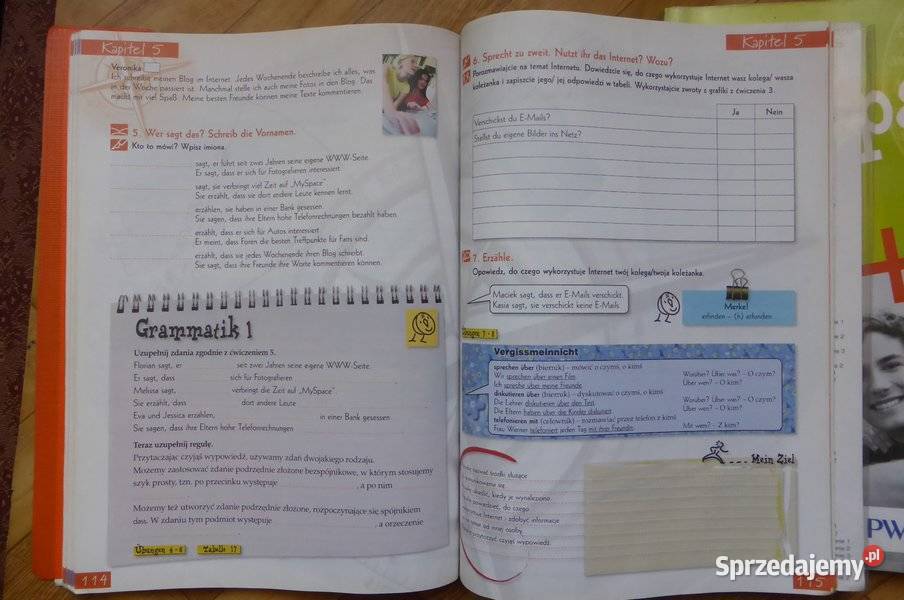 Kapitel 5
Veronika
Ich schreibe meinen Blog im Internet. Jedes Wochenende beschreibe ich alles, was
in der Woche passiert ist. Manchmal stelle ich auch meine Fotos in den Blog. Das
macht mir viel Spaß. Meine besten Freunde können meine Texte kommentieren.
5. Wer sagt das? Schreib die Vornamen.
Kto to mówi? Wpisz imiona.
sagt, er führt seit zwei Jahren seine eigene WWW-Seite.
Er sagt, dass er sich für Fotografieren interessiert.
sagt, sie verbringt viel Zeit auf „MySpace"
Sie erzählt, dass sie dort andere Leute kennen lernt.
erzählen, sie haben in einer Bank gesessen.
Sie sagen, dass ihre Eltern hohe Telefonrechnungen bezahlt haben.
erzählt, dass er sich für Autos interessiert.
Er meint, dass Foren die besten Treffpunkte für Fans sind.
erzählt, dass sie jedes Wochenende ihren Blog schreibt.
Sie sagt, dass ihre Freunde ihre Worte kommentieren können.
Grammatik 1
Uzupełnij zdania zgodnie z ćwiczeniem 5.
Florian sagt, er seit zwei Jahren seine eigene WWW-Seite.
Er sagt, dass sich für Fotografieren
Melissa sagt, verbringt die Zeit auf „MySpace"
Sie erzählt, dass dort andere Leute
Eva und Jessica erzählen, in einer Bank gesessen
Sie sagen, dass ihre Eltern hohe Telefonrechnungen
Teraz uzupełnij regułę.
Przytaczając czyjąś wypowiedź, używamy zdań dwojakiego rodzaju.
Możemy zastosować zdanie podrzędnie złożone bezspójnikowe, w którym stosujemy
szyk prosty, tzn. po przecinku występuje , a po nim
Możemy też utworzyć zdanie podrzędnie złożone, rozpoczynające się spójnikiem
dass. W zdaniu tym podmiot występuje , a orzeczenie
Übungen 4-6 Tabelle 17
114
Kapitel 5
6. Sprecht zu zweit. Nutzt ihr das Internet? Wozu?
Porozmawiajcie na temat Internetu. Dowiedzcie się, do czego wykorzystuje Internet wasz kolega/ wasza
koleżanka i zapiszcie jego/ jej odpowiedzi w tabeli. Wykorzystajcie zwroty z grafiki z ćwiczenia 3.
Ja Nein
Verschickst du E-Mails?
Stellst du eigene Bilder ins Netz?
7. Erzähle.
Opowiedz, do czego wykorzystuje Internet twój kolega/twoja koleżanka.
Maciek sagt, dass er E-Mails verschickt.
Kasia sagt, sie verschickt keine E-Mails.
Merke!
erfinden – (h) erfunden
Übungen 7-8
Vergissmeinnicht
sprechen über (biernik) – mówić o czymś, o kimś
Wir sprechen über einen Film. Worüber? Über was? – O czym?
Ich spreche über meine Freunde. Über wen? – O kim?
diskutieren über (biernik) – dyskutować o czymś, o kimś
Die Lehrer diskutieren über den Test. Worüber? Über was? – O czym?
Die Eltern haben über die Kinder diskutiert. Über wen? – O kim?
telefonieren mit (celownik) – rozmawiać przez telefon z kimś
Frau Werner telefoniert jeden Tag mit ihrer Freundin. Mit wem? – Z kim?
Mein Ziel
nazwać środki służące
się
określić, kiedy je wynaleziono
powiedzieć, do czego
Internet i zdobyć informacje
od innej osoby
przytoczyć czyjąś wypowiedź.
115
PW
Sprzedajemy.pl